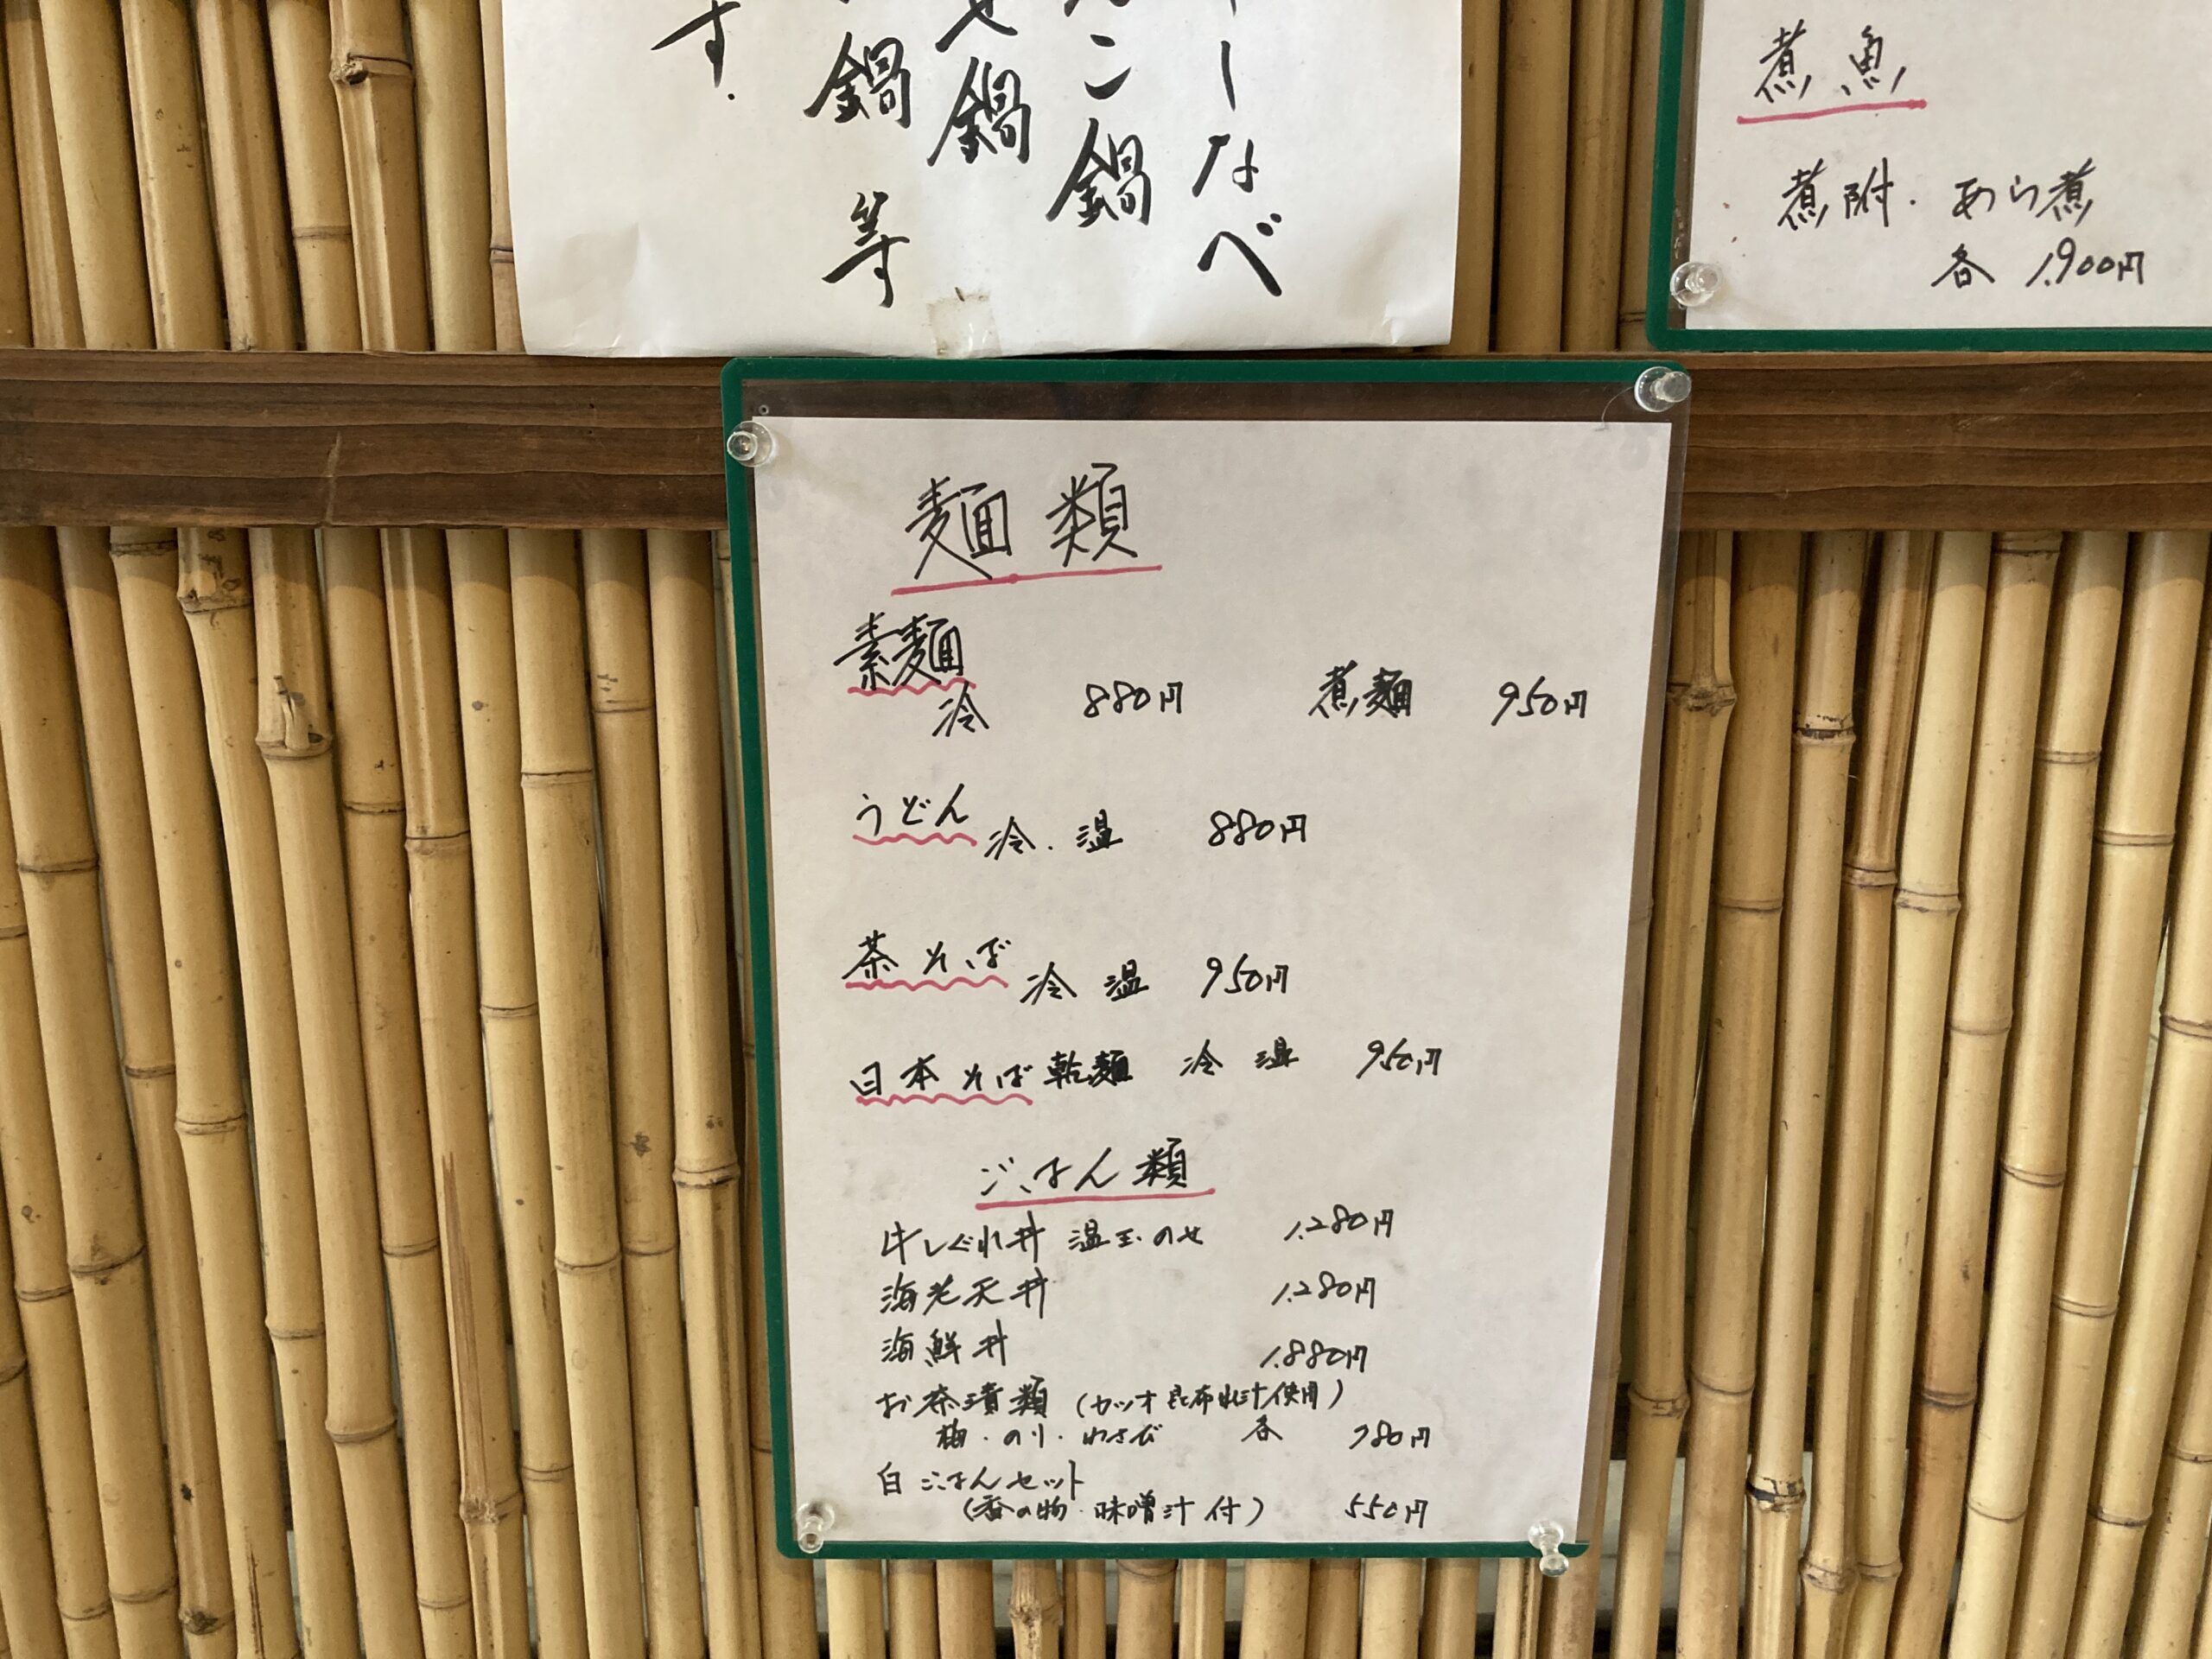 ーなべ
こ鍋
せ鍋
鍋 等
す.
煮魚
煮附. あら煮
各 1,900円
麺類
素麺
冷 880円 煮麺 950円
うどん 冷.温 880円
茶そば 冷 温 950円
日本そば乾麺 冷 温 950円
ごはん類
牛しぐれ丼 温玉のせ 1,280円
海老天丼 1,280円
海鮮丼 1,880円
お茶漬類 (カツオ昆布出汁使用)
梅・のり・わさび 各 780円
白ごはんセット
(香の物・味噌汁付) 550円